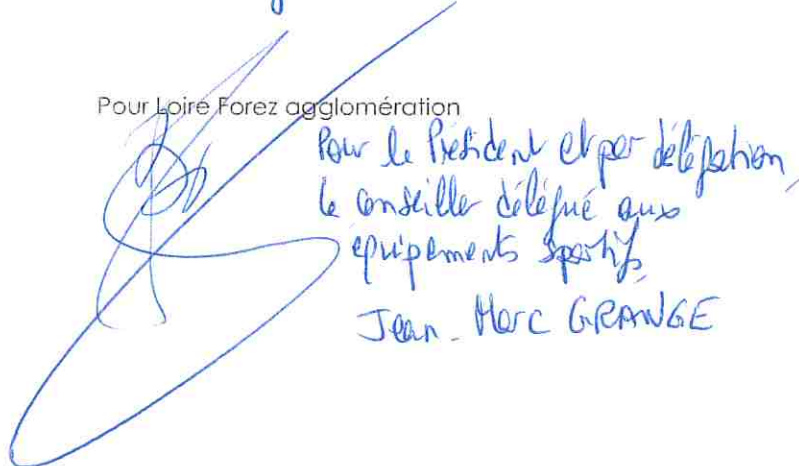 Pour Loire Forez agglomération
Pour le Président et par délégation,
le conseiller délégué aux
équipements sportifs,
Jean-Marc GRANGE